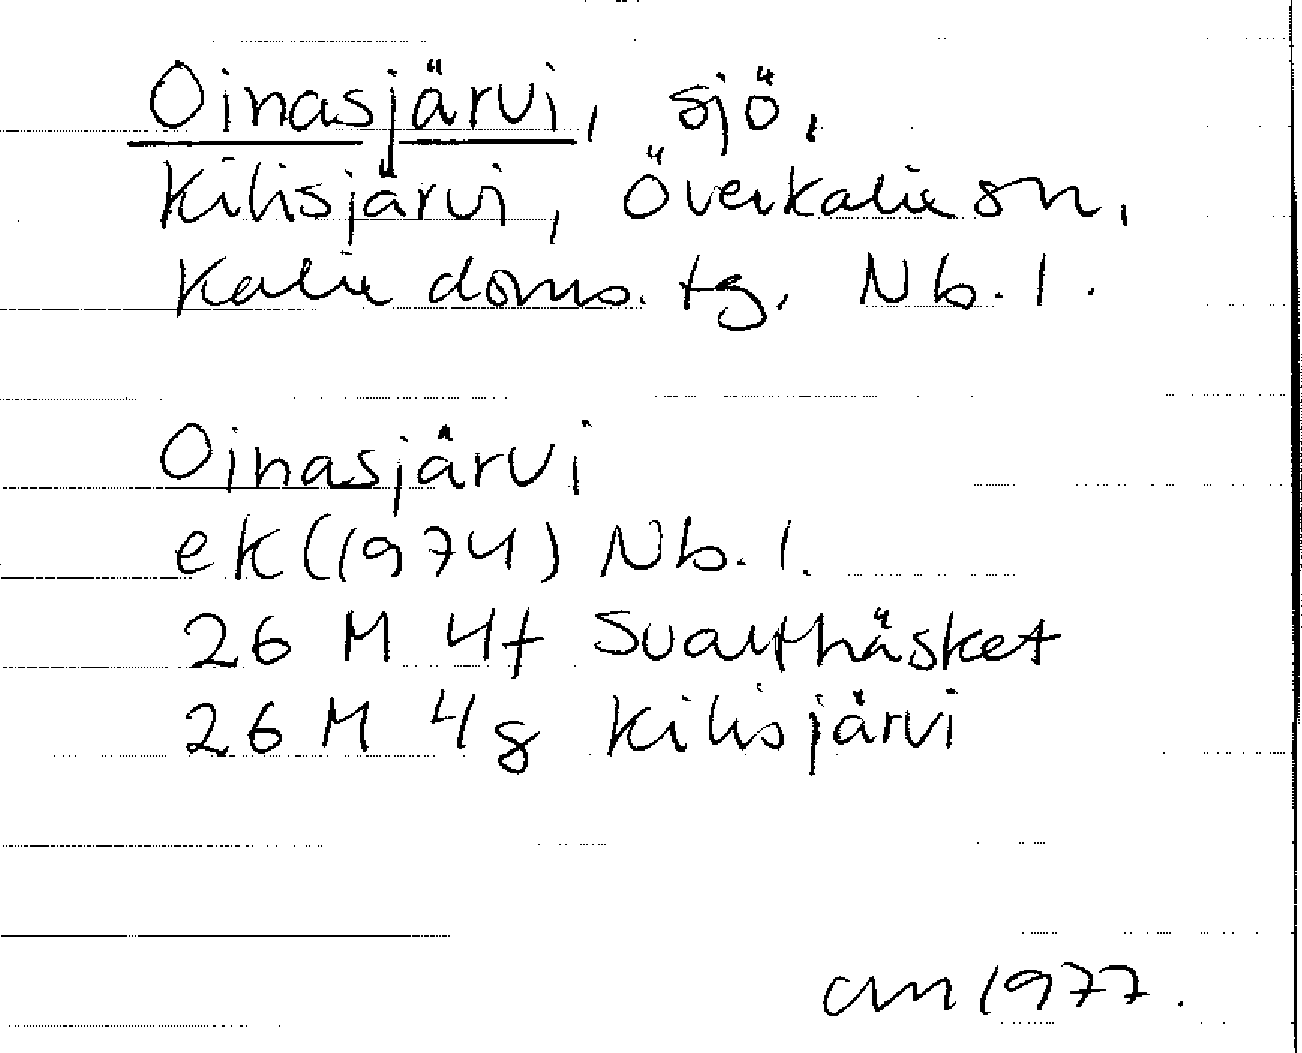 Oinasjärvi, sjö,
Kilisjärvi, Överkalix sn,
Kalix doms. tg, Nb. l.
Oinasjärvi
ek (1974) Nb. l.
26 M 4f Svartbäsket
26 M 4g Kilisjärvi
cm 1977.